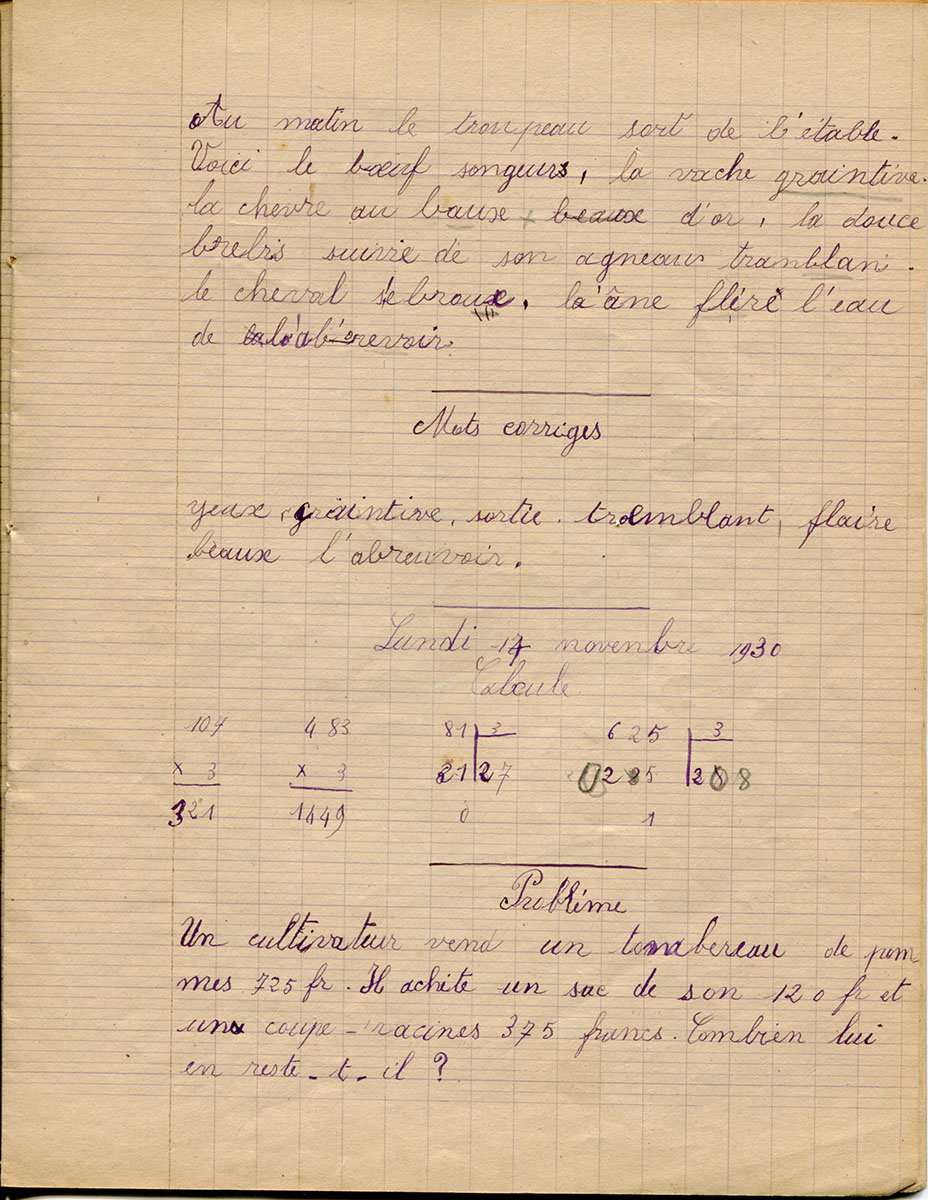 Au matin le troupeau sort de l'étable.
Voici le bœuf songeurs, la vache graintive.
la chevre au baux beaux d'or, la douce
brebis suivie de son agneaux tramblan.
le cheval s'ebroue, la'âne flire l'eau
de l'ab'revoir.
Mots corriges
yeux, graintive, sortie. tremblant, flaire
beaux l'abreuvoir.
Lundi 17 novembre 1930
Calcule
107 483 81 3 625 3
x 3 x 3 21 27 025 208
321 1449 0 1
Problème
Un cultivateur vend un tombereau de pom-
mes 725 fr. Il achète un sac de son 120 fr et
un coupe-racines 375 francs. Combien lui
en reste-t-il ?